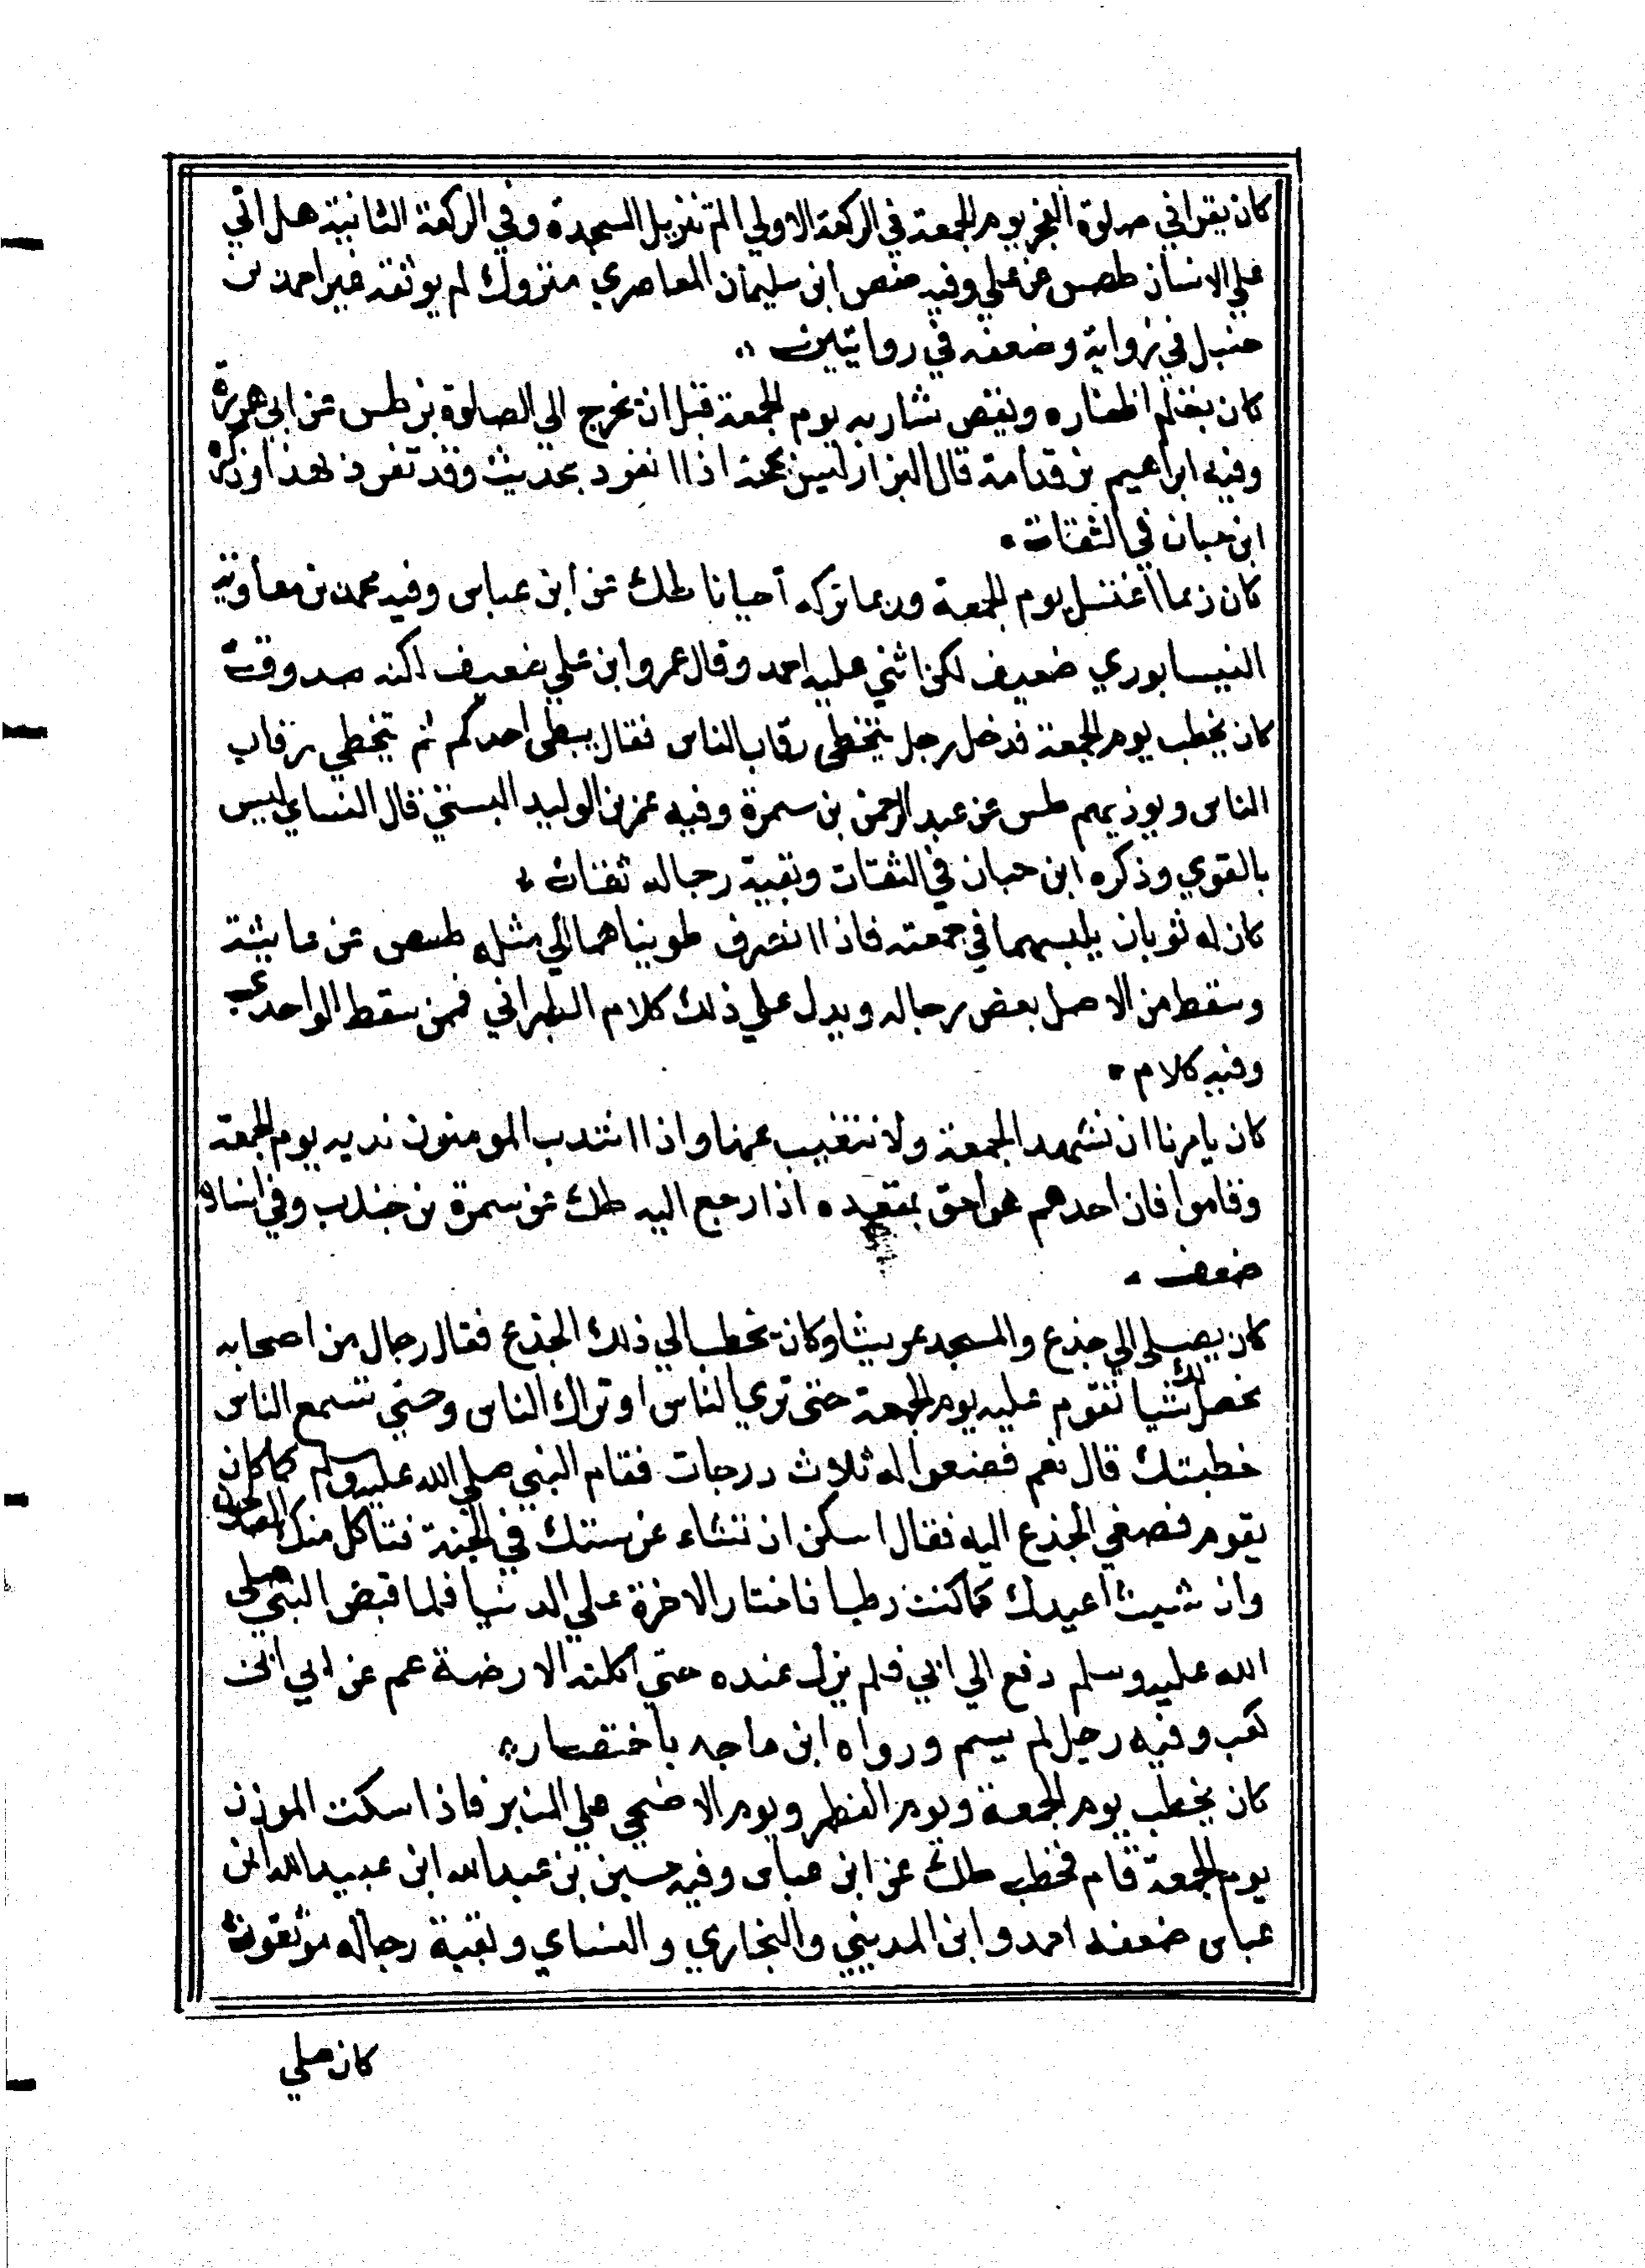 كان يقرا في صلوة الفجر يوم الجمعة في الركعة الاولي الم تنزيل السجدة وفي الركعة الثانية هل اتي
علي الانسان طصس عن علي وفيه حفص ابن سليمان المعاصري متروك لم يوثقه غير احمد بن
حنبل في رواية وضعفه في روايتين
كان يقلم اظفاره ويقص شاربه يوم الجمعة قبل ان يخرج الي الصلوة بز طس عن ابي هريرة
وفيه ابراهيم بن قدامة قال البزار ليس بحجة اذا انفرد بحديث وقد تفرد بهذا وذكره
ابن حبان في الثقات
كان ربما اغتسل يوم الجمعة وربما تركه احيانا طك عن ابن عباس وفيه محمد بن معاوية
النيسابوري ضعيف لكن اثني عليه احمد وقال عمرو ابن علي ضعيف لكنه صدوق
كان يخطب يوم الجمعة فدخل رجل يتخطى رقاب الناس فقال يبطى احدكم ثم يتخطي رقاب
الناس ويوذيهم طس عن عبد الرحمن بن سمرة وفيه عمر بن الوليد البستي قال النساي ليس
بالقوي وذكره ابن حبان في الثقات وبقية رجاله ثقات
كان له ثوبان يلبسهما في جمعته فاذا انصرف طويناهما الي مثله طسص عن عايشة
وسقط من الاصل بعض رجاله ويدل علي ذلك كلام الطبراني فمن سقط الواحدي
وفيه كلام
كان يامرنا ان نشهد الجمعة ولا نتغيب عنها واذا انتدب المومنون نديه يوم الجمعة
وقاموا فان احدهم هو احق بمقعده اذا رجع اليه طك عن سمرة بن جندب وفي اسناده
ضعف
كان يصلى الي جذع والمسجد عريشا وكان يخطب الي ذلك الجذع فقال رجال من اصحابه
نجعل لك شيا تقوم عليه يوم الجمعة حتى تري الناس او تراك الناس وحتي تسمع الناس
خطبتك قال نعم فصنعوا له ثلاث درجات فقام النبي صلي الله عليه وسلم كما كان
يقوم فصغي الجذع اليه فقال اسكن ان تشاء غرستك في الجنة فتاكل منك الصالحون
وان شيت اعيدك كما كنت رطبا فاختار الاخرة علي الدنيا فلما قبض النبي صلى
الله عليه وسلم دفع الي ابي فلم يزل عنده حتي اكلته الارضة عم عن ابي ابن
كعب وفيه رجل لم يسم ورواه ابن ماجه باختصار
كان يخطب يوم الجمعة ويوم الفطر ويوم الاضحي علي المنبر فاذا سكت الموذن
يوم الجمعة قام فخطب طك عن ابن عباس وفيه حسين بن عبد الله ابن عبيد الله ابن
عباس ضعفه احمد وابن المديني والبخاري والنساي وبقية رجاله موثقون
كان صلي